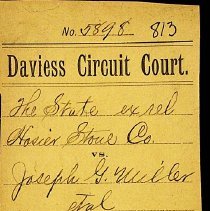 No. 5898 813
Daviess Circuit Court.
The State ex rel
Hosier Stone Co.
vs.
Joseph G. Miller
et al